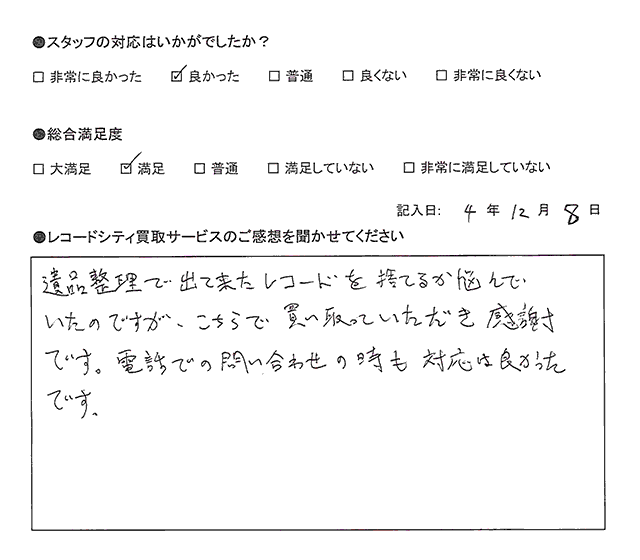 ●スタッフの対応はいかがでしたか？
□ 非常に良かった ☑ 良かった □ 普通 □ 良くない □ 非常に良くない
●総合満足度
□ 大満足 ☑ 満足 □ 普通 □ 満足していない □ 非常に満足していない
記入日: 4 年 12 月 8 日
●レコードシティ買取サービスのご感想を聞かせてください
遺品整理で出て来たレコードを捨てるか悩んで
いたのですが、こちらで買い取っていただき感謝
です。電話での問い合わせの時も対応は良かった
です。